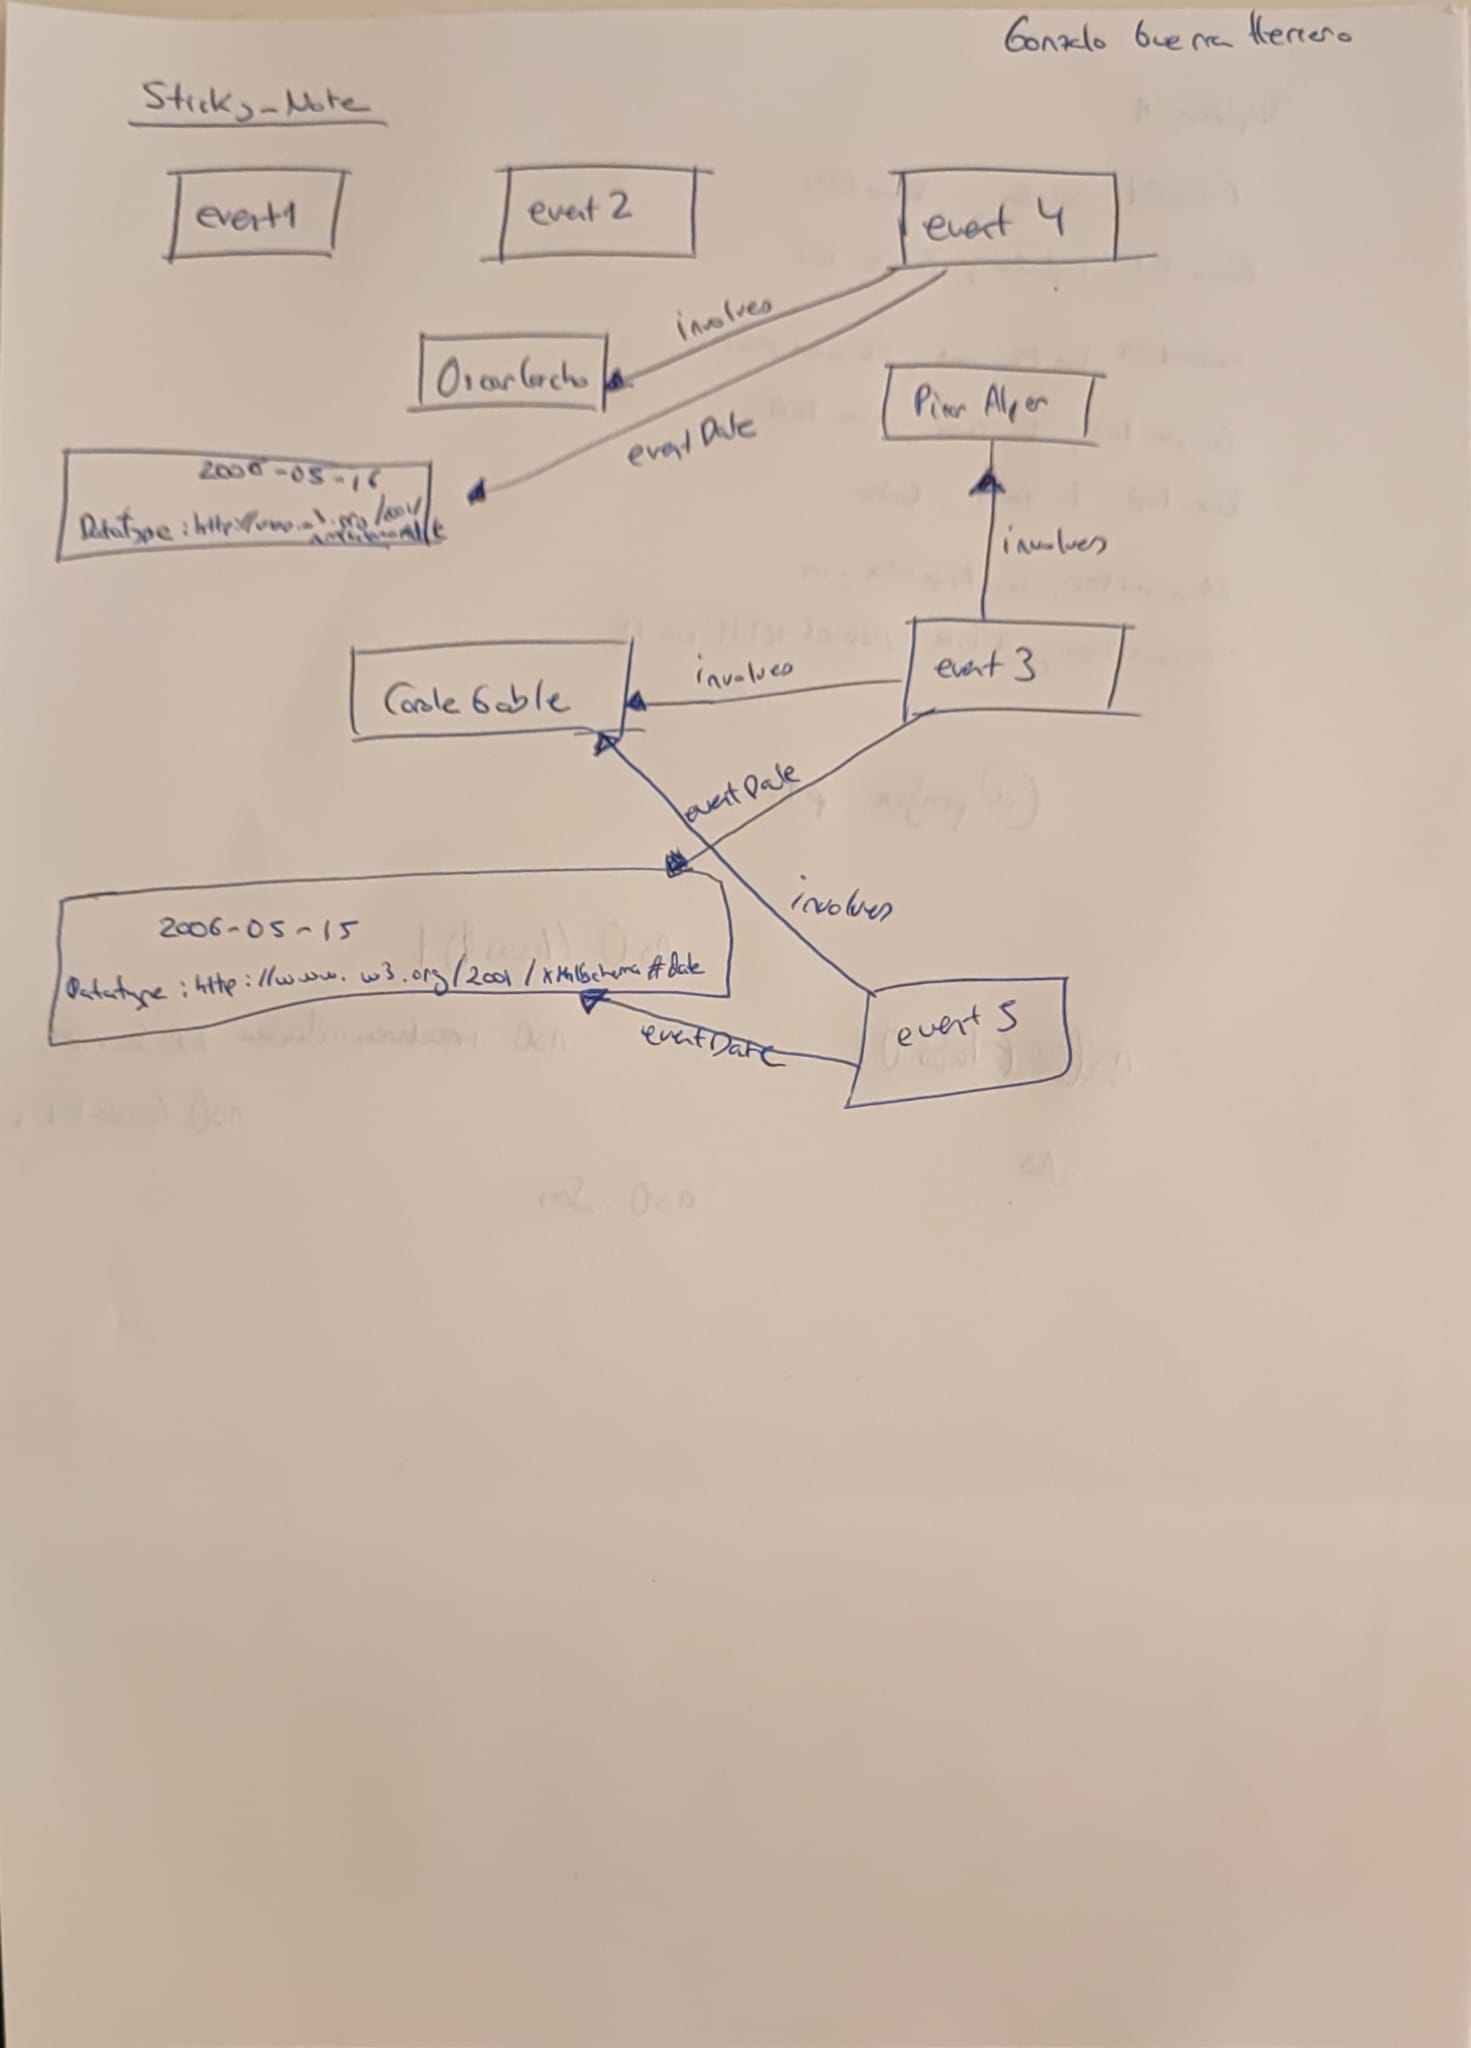 Gonzalo Guerra Herrero
Sticky_Note
event1
event 2
event 4
involves
Oscar Corcho
Pinar Alper
eventDate
2006-05-16
Datatype : http://www.
involves
event 3
involves
Carole Goble
eventDate
involves
2006-05-15
Datatype : http://www.w3.org/2001/XMLSchema#date
event 5
eventDate